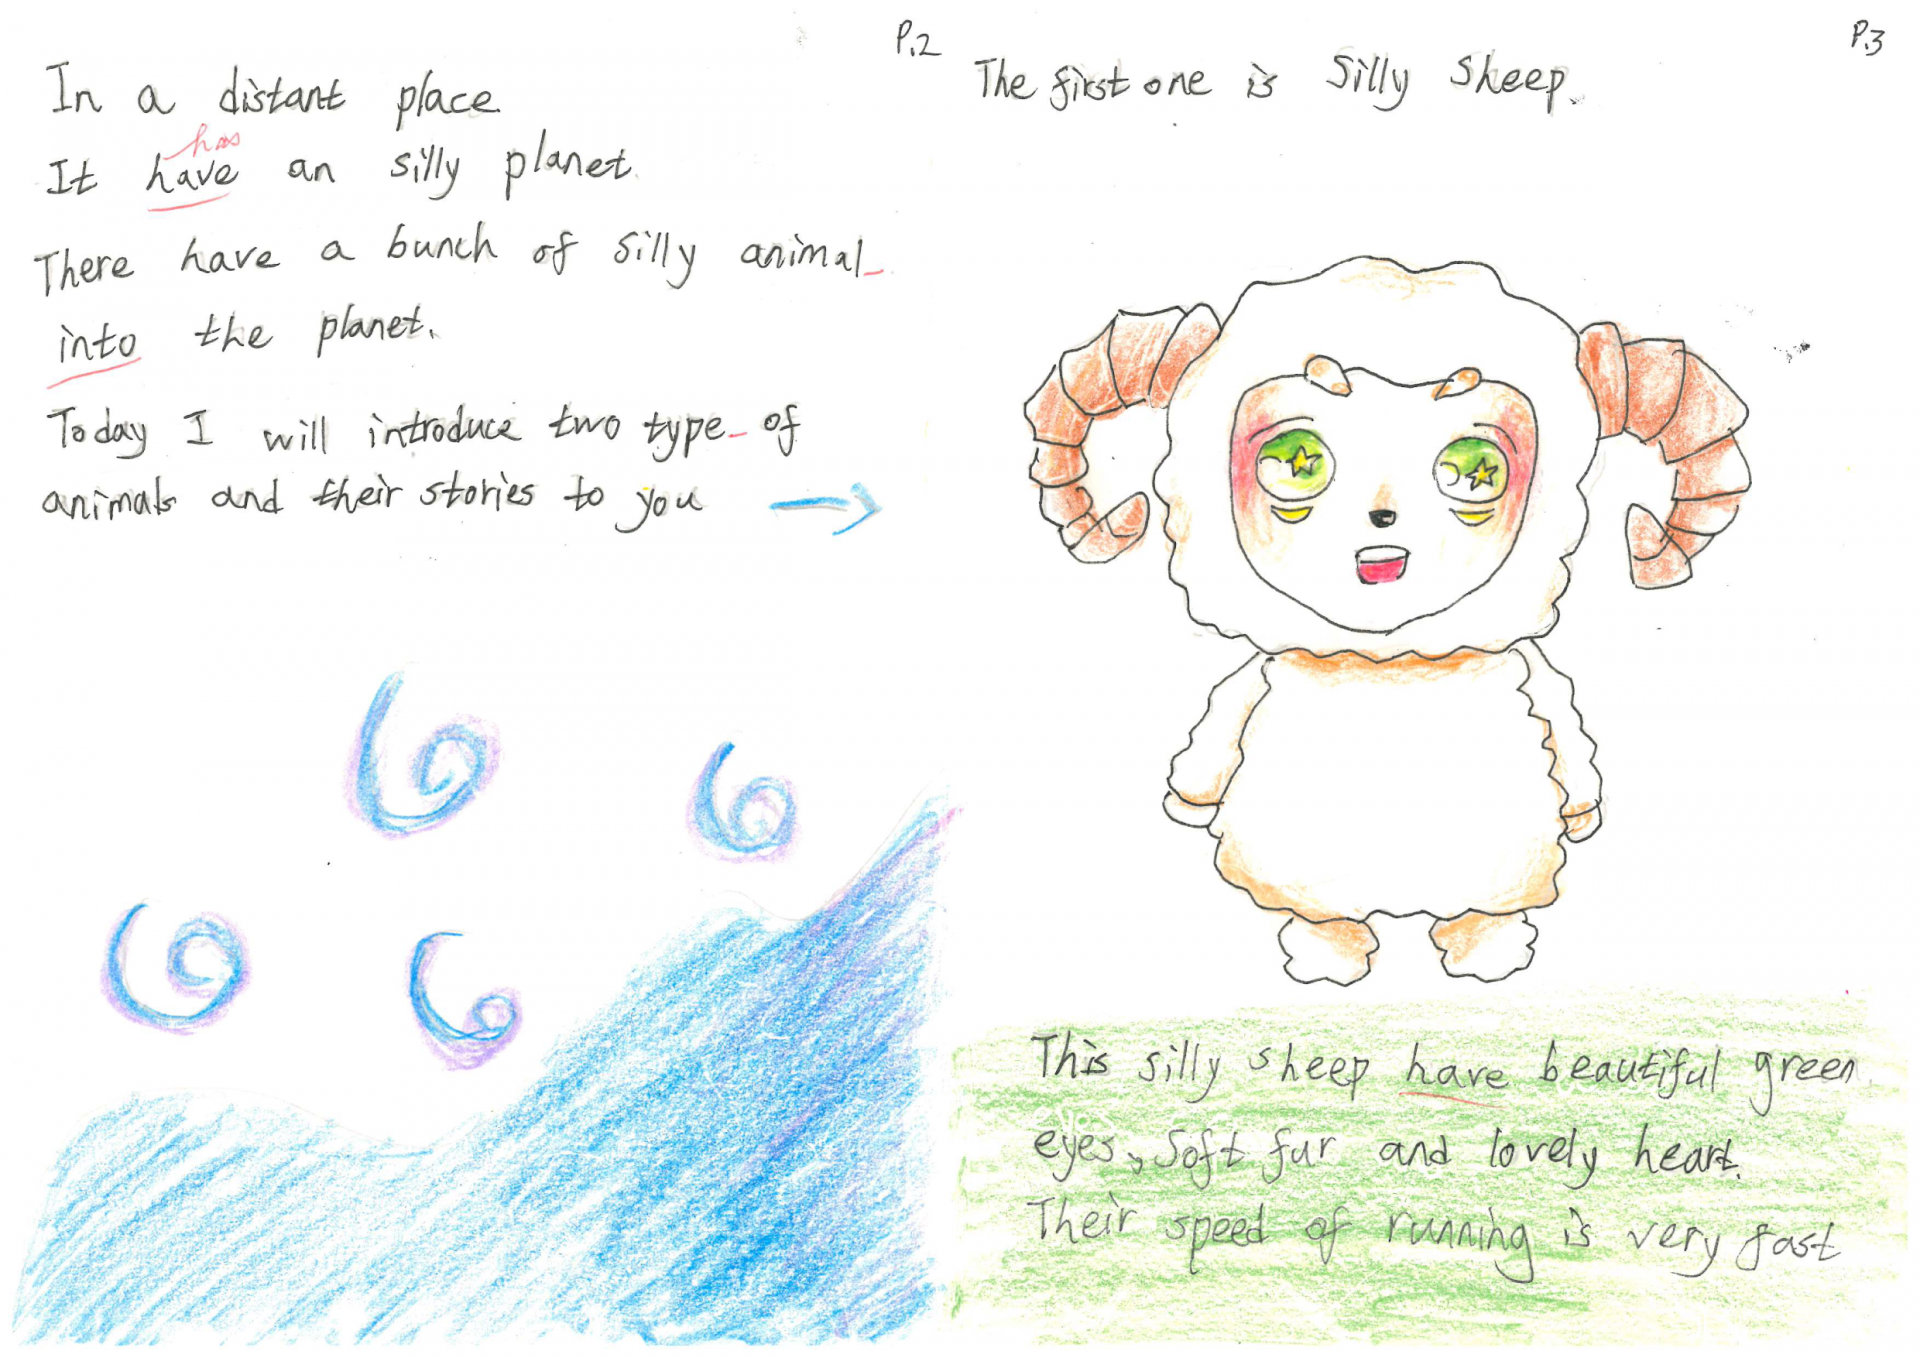 P.2
In a distant place
has
It have an silly planet.
There have a bunch of silly animal
into the planet.
Today I will introduce two type of
animals and their stories to you
P.3
The first one is Silly Sheep.
This silly sheep have beautiful green
eyes, soft fur and lovely heart.
Their speed of running is very fast